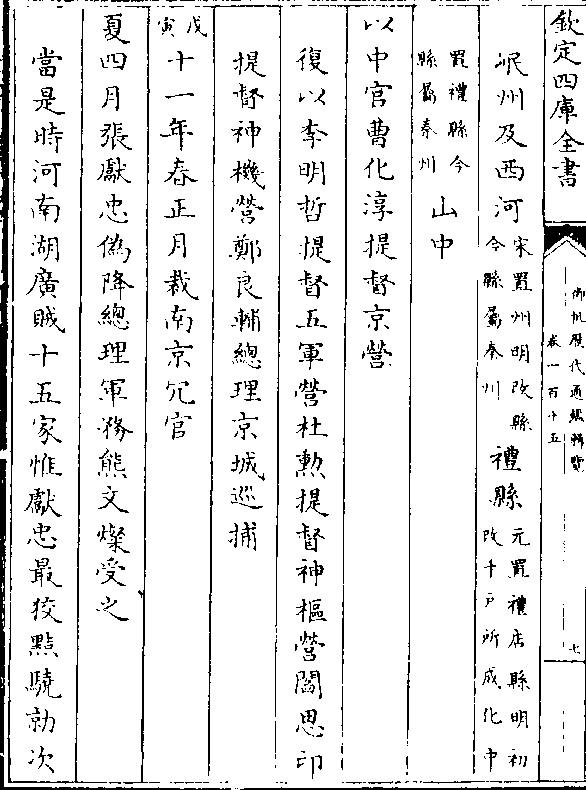 欽定四庫全書
御批歷代通鑑輯覽
卷一百十五
七
岷州及西河宋置州明改縣今縣屬秦州禮縣元置禮店縣明初改千戶所成化中
置禮縣今縣屬秦州山中
以中官曹化淳提督京營
復以李明哲提督五軍營杜勲提督神樞營閻思印
提督神機營鄭良輔總理京城巡捕
戊寅十一年春正月裁南京冗官
夏四月張獻忠偽降總理軍務熊文燦受之
當是時河南湖廣賊十五家惟獻忠最狡黠驍勍次